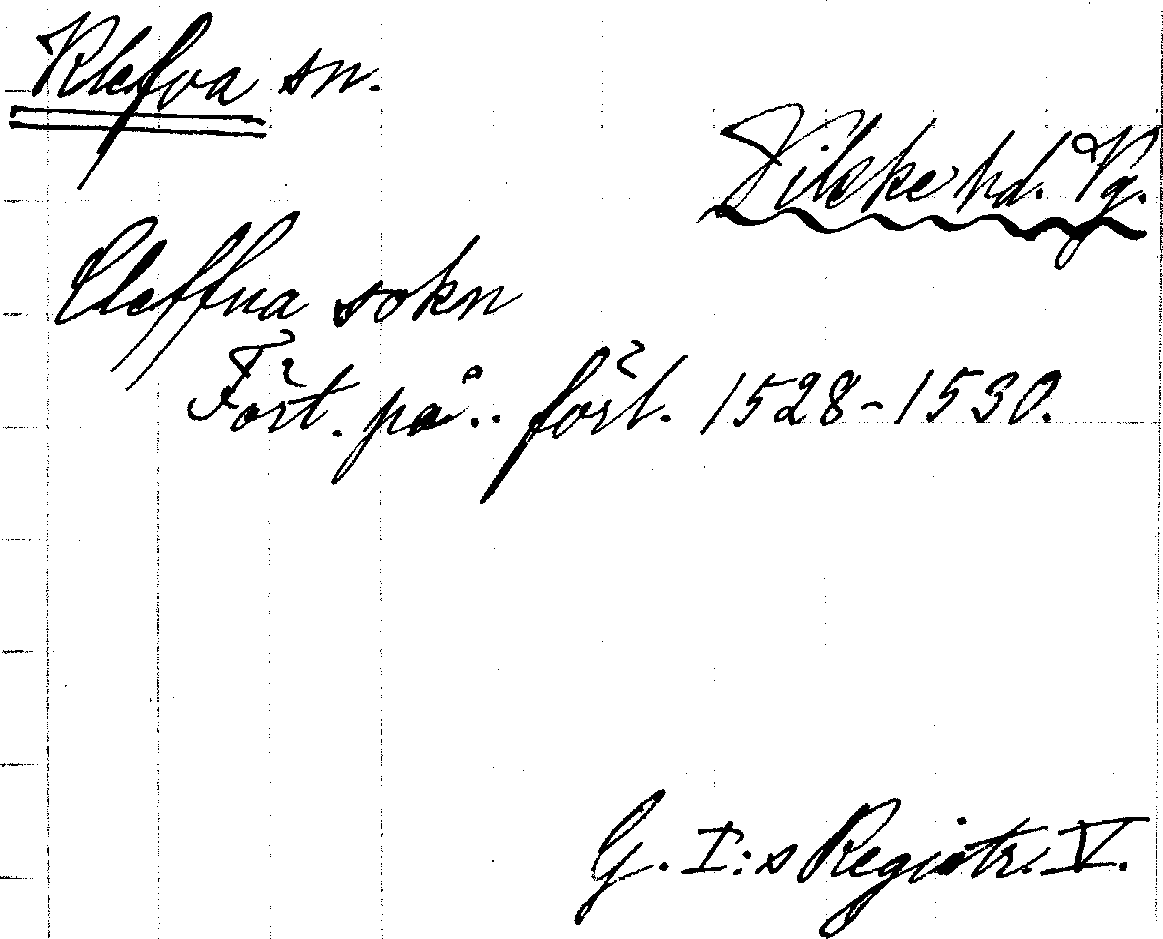 Klefva sn.
Vilske hd. Vg.
Cleffua sokn
Fört. på.. förl. 1528-1530.
G. I:s Registr. V.